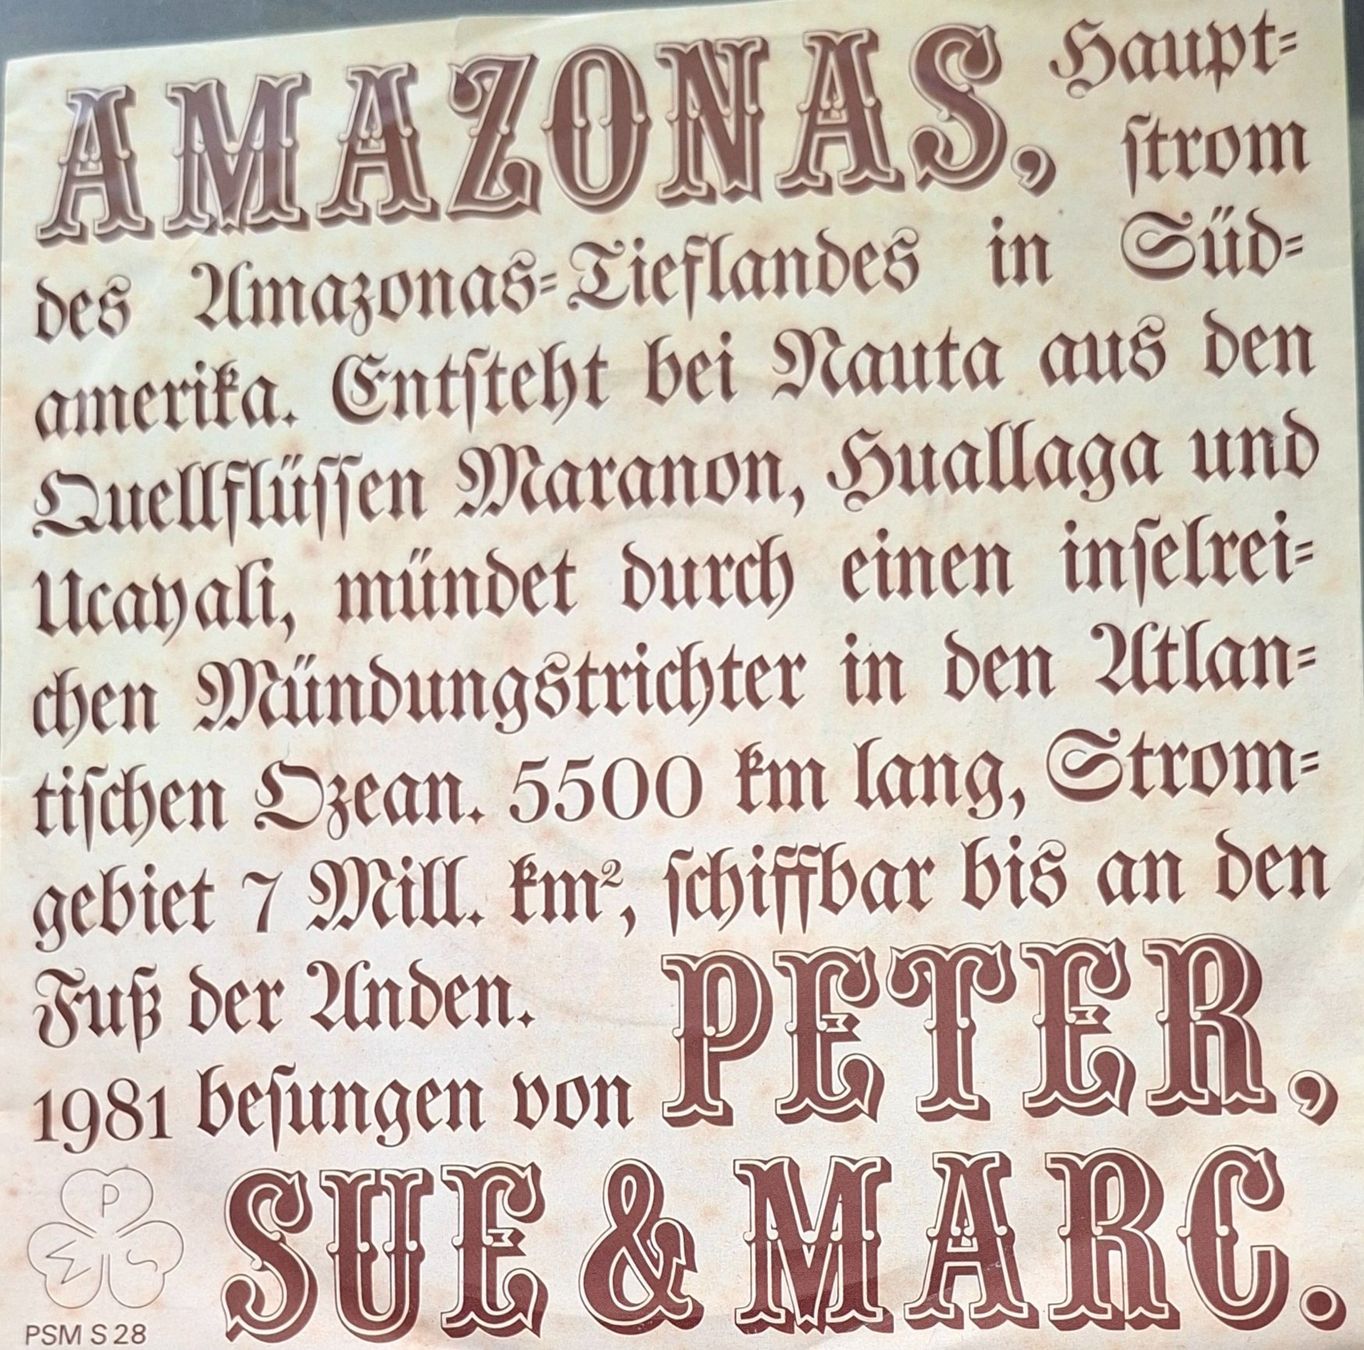 AMAZONAS, Haupt-
ſtrom
des Amazonas-Tieflandes in Süd-
amerika. Entſteht bei Nauta aus den
Quellflüſſen Maranon, Huallaga und
Ucayali, mündet durch einen inſelrei-
chen Mündungstrichter in den Atlan-
tiſchen Ozean. 5500 km lang, Strom-
gebiet 7 Mill. km², ſchiffbar bis an den
Fuß der Anden. PETER,
1981 beſungen von
SUE & MARC.
P
S M
PSM S 28